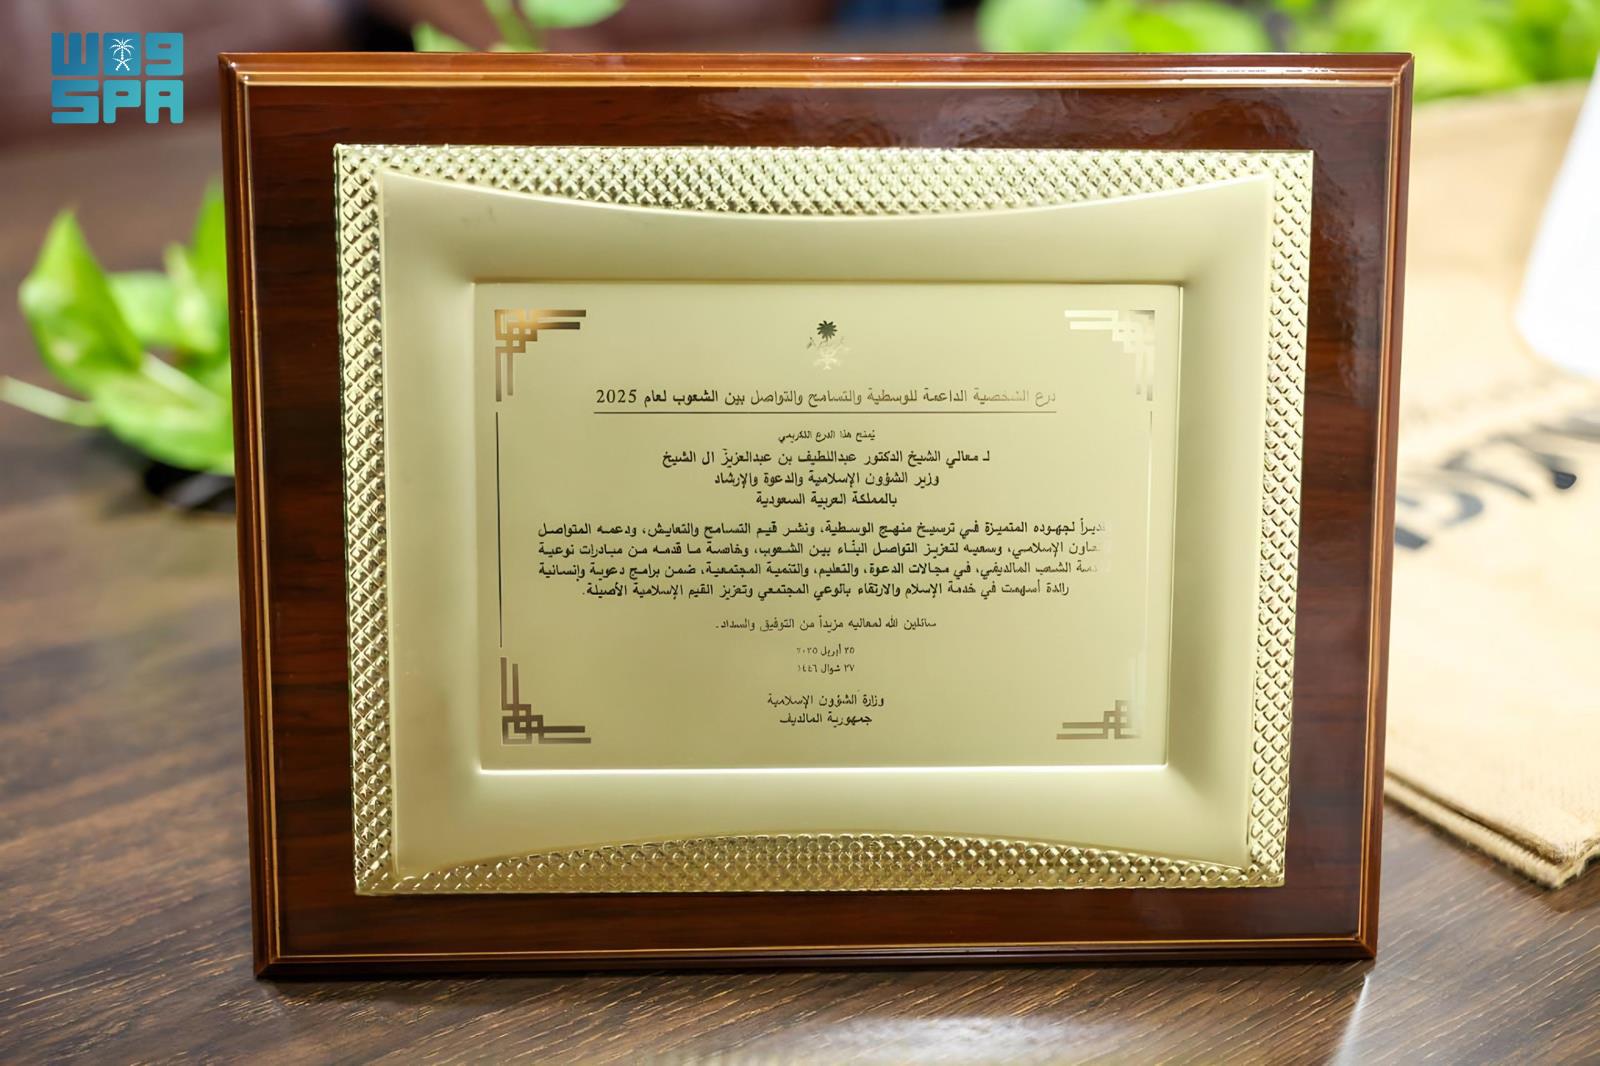 واس
SPA
درع الشخصية الداعمة للوسطية والتسامح والتواصل بين الشعوب لعام 2025
يُمنح هذا الدرع التكريمي
لـ معالي الشيخ الدكتور عبداللطيف بن عبدالعزيز ال الشيخ
وزير الشؤون الإسلامية والدعوة والإرشاد
بالمملكة العربية السعودية
تقديراً لجهوده المتميزة في ترسيخ منهج الوسطية، ونشر قيم التسامح والتعايش، ودعمه المتواصل
للتعاون الإسلامي، وسعيه لتعزيز التواصل البنّاء بين الشعوب، وخاصة ما قدمه من مبادرات نوعية
لخدمة الشعب المالديفي، في مجالات الدعوة، والتعليم، والتنمية المجتمعية، ضمن برامج دعوية وإنسانية
رائدة أسهمت في خدمة الإسلام والارتقاء بالوعي المجتمعي وتعزيز القيم الإسلامية الأصيلة.
سائلين الله لمعاليه مزيداً من التوفيق والسداد.
٢٥ أبريل ٢٠٢٥
٢٧ شوال ١٤٤٦
وزارة الشؤون الإسلامية
جمهورية المالديف